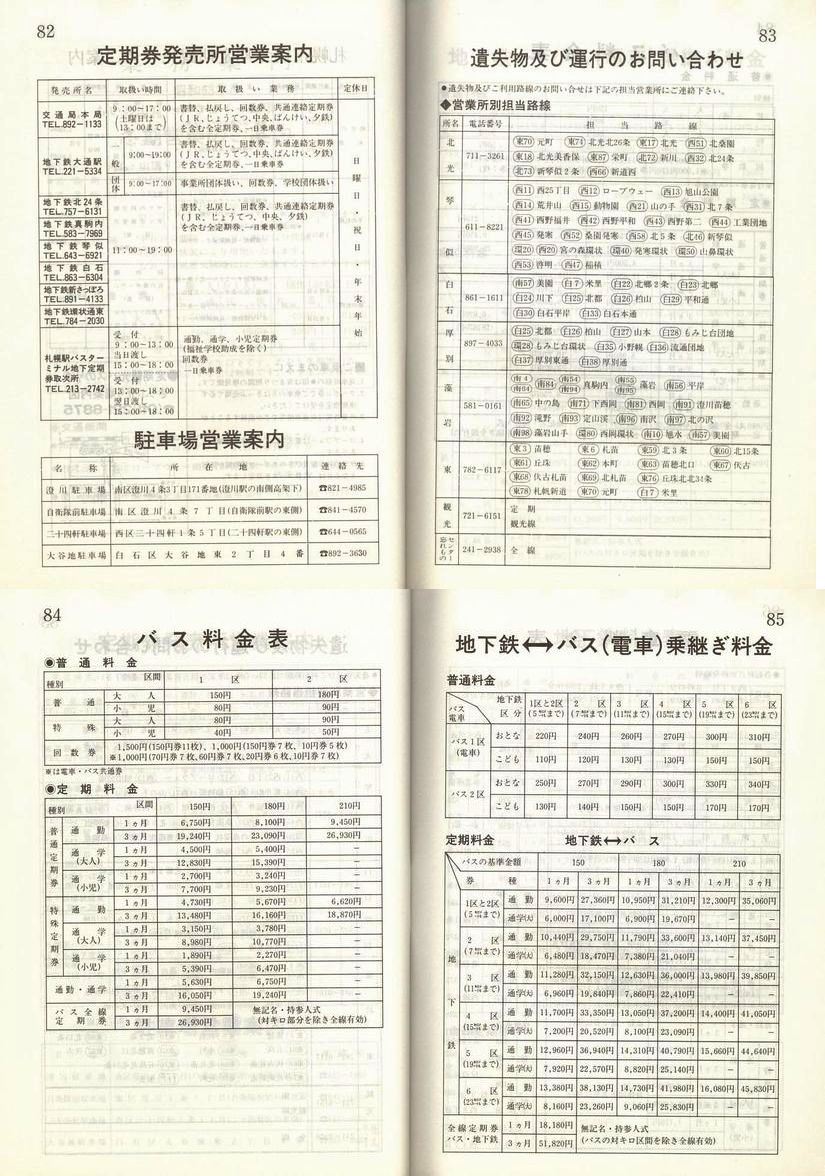 82
定期券発売所営業案内
発売所名 取扱い時間 取扱い業務 定休日
交通局本局 TEL.892-1133
9:00~17:00 (土曜日は 13:00まで)
書替、払戻し、回数券、共通連絡定期券
(JR、じょうてつ、中央、ばんけい、夕鉄)
を含む全定期券、一日乗車券
地下鉄大通駅 TEL.221-5334
一般 9:00~19:00
書替、払戻し、回数券、共通連絡定期券
(JR、じょうてつ、中央、夕鉄)
を含む全定期券、一日乗車券
団体 9:00~17:00 事業所団体扱い、回数券、学校団体扱い
地下鉄北24条 TEL.757-6131
地下鉄真駒内 TEL.583-7969
地下鉄琴似 TEL.643-6921
地下鉄白石 TEL.863-6304
地下鉄新さっぽろ TEL.891-4133
地下鉄環状通東 TEL.784-2030
11:00~19:00
書替、払戻し、回数券、共通連絡定期券
(JR、じょうてつ、中央、夕鉄)
を含む全定期券、一日乗車券
札幌駅バスターミナル地下定期券取次所 TEL.213-2742
受付 9:00~13:00
当日渡し 15:00~18:00
受付 13:00~18:00
翌日渡し 15:00~18:00
通勤、通学、小児定期券
(福祉学校助成を除く)
回数券
一日乗車券
日曜日・祝日・年末年始
駐車場営業案内
名称 所在地 連絡先
澄川駐車場 南区澄川4条3丁目171番地(澄川駅の南側高架下) ☎821-4985
自衛隊前駐車場 南区澄川4条7丁目(自衛隊前駅の東側) ☎841-4570
二十四軒駐車場 西区二十四軒1条5丁目(二十四軒駅の東側) ☎644-0565
大谷地駐車場 白石区大谷地東2丁目4番 ☎892-3630
83
遺失物及び運行のお問い合わせ
●遺失物及びご利用路線のお問い合せは下記の担当営業所にご連絡下さい。
◆営業所別担当路線
所名 電話番号 担当路線
北光 711-3261
東70 元町 東74 北光北26条 東17 北光 西51 北桑園
東18 北光美香保 東87 栄町 北72 新川 西32 北24条
北73 新琴似2条 西66 新道西
琴似 611-8221
西11 西25丁目 西12 ロープウェー 西13 旭山公園
西14 荒井山 西15 動物園 西21 山の手 西31 北7条
西41 西野福井 西42 西野平和 西43 西野第二 西44 工業団地
西45 発寒 西52 桑園発寒 西58 北5条 北46 新琴似
環20 西20 宮の森環状 環40 発寒環状 環50 山鼻環状
西53 啓明 西47 稲積
白石 861-1611
南57 美園 白7 米里 白22 北郷2条 白23 北郷
白24 川下 白25 北都 白26 柏山 白29 平和通
白30 白石平岸 白33 白石本通
厚別 897-4033
白25 北都 白26 柏山 白27 山本 白28 もみじ台団地
環28 もみじ台環状 白35 小野幌 白36 流通団地
白37 厚別東通 白38 厚別通
藻岩 581-0161
南4 南64 南84 南54 南94 真駒内 南55 南95 藻岩 南56 平岸
南65 中の島 南71 下西岡 南81 西岡 南91 澄川苗穂
南92 滝野 南93 定山渓 南96 南沢 南97 北の沢
南98 藻岩山手 環80 西岡環状 南10 旭水 南57 美園
東 782-6117
東3 苗穂 東6 札苗 東59 北3条 東60 北15条
東61 丘珠 東62 本町 東63 苗穂北口 東67 伏古
東68 伏古札苗 東69 北札苗 東76 丘珠北北34条
東78 札幌新道 東70 元町 白7 米里
観光 721-6151 定期 観光線
忘れものセンター 241-2938 全線
84
バス料金表
◉普通料金
種別 区間 1区 2区
普通 大人 150円 180円
小児 80円 90円
特殊 大人 80円 90円
小児 40円 50円
回数券 1,500円(150円券11枚)、1,000円(150円券7枚、10円券5枚)
※1,000円(70円券7枚、60円券7枚、20円券6枚、10円券7枚)
※は電車・バス共通券
◉定期料金
種別 区間 150円 180円 210円
普通定期券
通勤 1ヵ月 6,750円 8,100円 9,450円
3ヵ月 19,240円 23,090円 26,930円
通学(大人) 1ヵ月 4,500円 5,400円 -
3ヵ月 12,830円 15,390円 -
通学(小児) 1ヵ月 2,700円 3,240円 -
3ヵ月 7,700円 9,230円 -
特殊定期券
通勤 1ヵ月 4,730円 5,670円 6,620円
3ヵ月 13,480円 16,160円 18,870円
通学(大人) 1ヵ月 3,150円 3,780円 -
3ヵ月 8,980円 10,770円 -
通学(小児) 1ヵ月 1,890円 2,270円 -
3ヵ月 5,390円 6,470円 -
通勤・通学 1ヵ月 5,630円 6,750円 -
3ヵ月 16,050円 19,240円 -
バス全線定期券 1ヵ月 9,450円 無記名・持参人式
3ヵ月 26,930円 (対キロ部分を除き全線有効)
85
地下鉄↔バス(電車)乗継ぎ料金
普通料金
バス電車 地下鉄区分 1区と2区(5㎞まで) 2区(7㎞まで) 3区(11㎞まで) 4区(15㎞まで) 5区(19㎞まで) 6区(23㎞まで)
バス1区(電車) おとな 220円 240円 260円 270円 300円 310円
こども 110円 120円 130円 130円 150円 150円
バス2区 おとな 250円 270円 290円 300円 330円 340円
こども 130円 140円 150円 150円 170円 170円
定期料金 地下鉄↔バス
バスの基準金額 150 180 210
券種 1ヵ月 3ヵ月 1ヵ月 3ヵ月 1ヵ月 3ヵ月
地下鉄
1区と2区(5㎞まで) 通勤 9,600円 27,360円 10,950円 31,210円 12,300円 35,060円
通学(大) 6,000円 17,100円 6,900円 19,670円 - -
2区(7㎞まで) 通勤 10,440円 29,750円 11,790円 33,600円 13,140円 37,450円
通学(大) 6,480円 18,470円 7,380円 21,040円 - -
3区(11㎞まで) 通勤 11,280円 32,150円 12,630円 36,000円 13,980円 39,850円
通学(大) 6,960円 19,840円 7,860円 22,410円 - -
4区(15㎞まで) 通勤 11,700円 33,350円 13,050円 37,200円 14,400円 41,050円
通学(大) 7,200円 20,520円 8,100円 23,090円 - -
5区(19㎞まで) 通勤 12,960円 36,940円 14,310円 40,790円 15,660円 44,640円
通学(大) 7,920円 22,570円 8,820円 25,140円 - -
6区(23㎞まで) 通勤 13,380円 38,130円 14,730円 41,980円 16,080円 45,830円
通学(大) 8,160円 23,260円 9,060円 25,830円 - -
全線定期券 バス・地下鉄 1ヵ月 18,180円 無記名・持参人式
3ヵ月 51,820円 (バスの対キロ区間を除き全線有効)